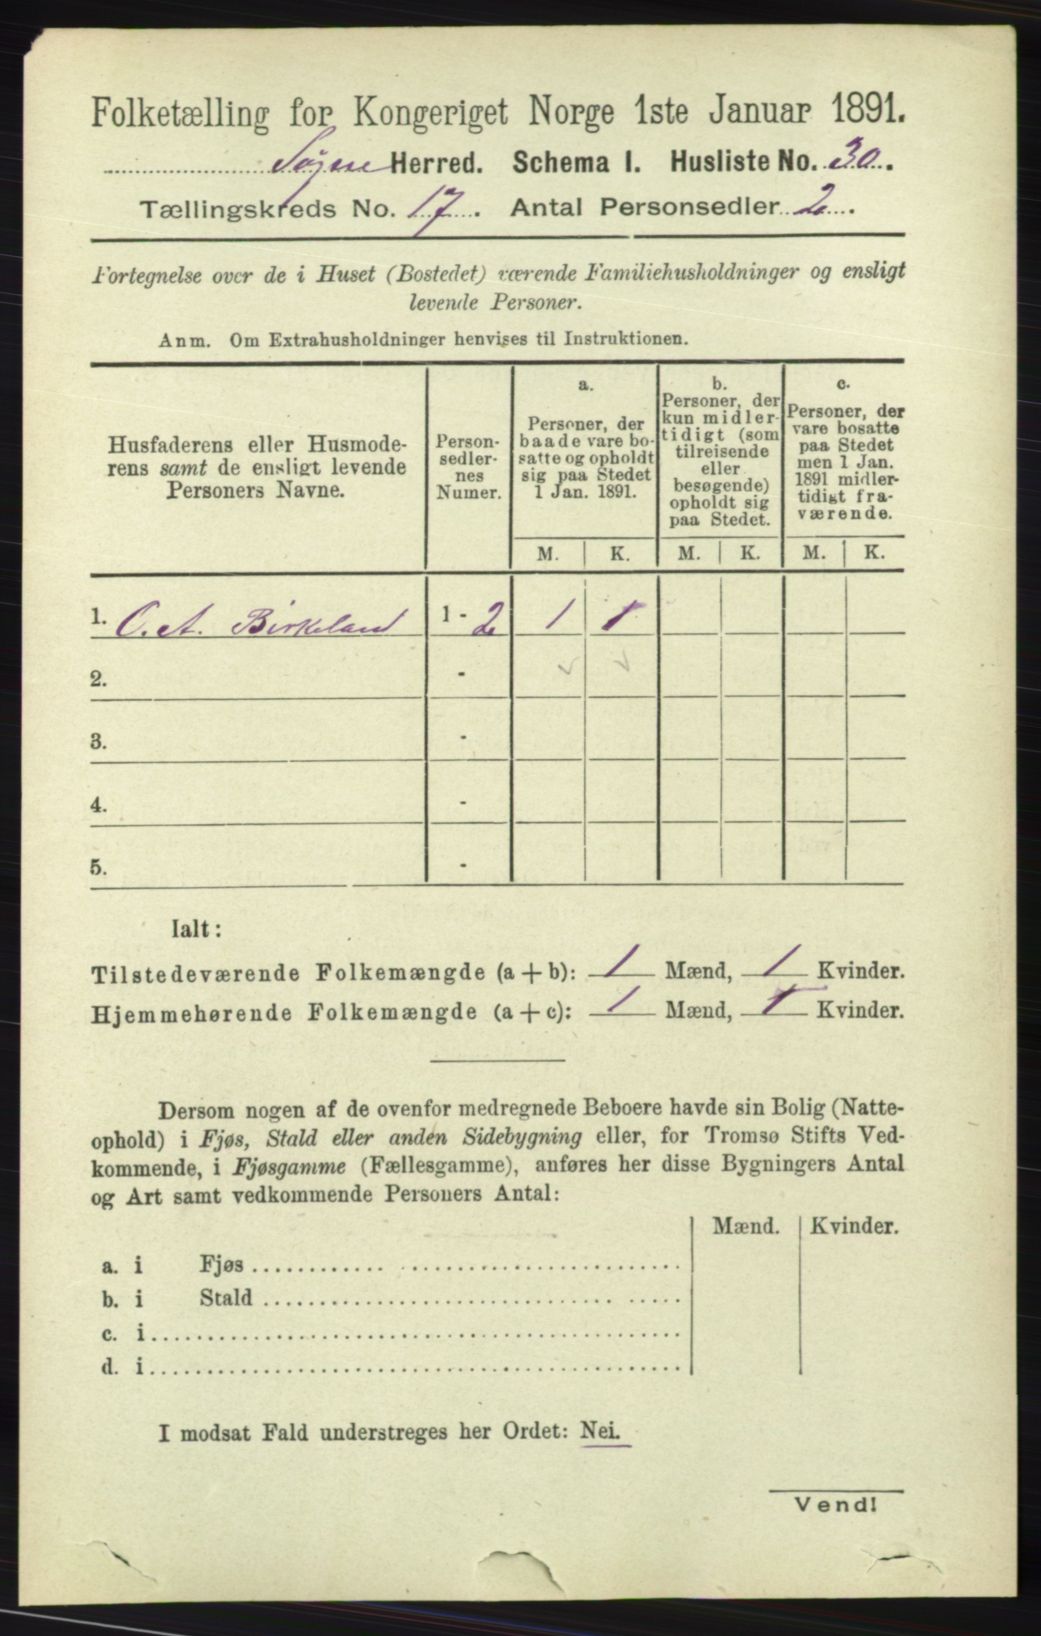 Folketælling for Kongeriget Norge 1ste Januar 1891.
Søgne Herred. Schema I. Husliste No. 30.
Tællingskreds No. 17. Antal Personsedler 2.
Fortegnelse over de i Huset (Bostedet) værende Familiehusholdninger og ensligt
levende Personer.
Anm. Om Extrahusholdninger henvises til Instruktionen.
Husfaderens eller Husmode-
rens samt de ensligt levende
Personers Navne.
Person-
sedler-
nes
Numer.
a.
Personer, der
baade vare bo-
satte og opholdt
sig paa Stedet
1 Jan. 1891.
b.
Personer, der
kun midler-
tidigt (som
tilreisende
eller
besøgende)
opholdt sig
paa Stedet.
c.
Personer, der
vare bosatte
paa Stedet
men 1 Jan.
1891 midler-
tidigt fra-
værende.
M. K. M. K. M. K.
1. O. A. Birkeland 1 - 2 1 1
2. -
3. -
4. -
5. -
Ialt:
Tilstedeværende Folkemængde (a + b): 1 Mænd, 1 Kvinder.
Hjemmehørende Folkemængde (a + c): 1 Mænd, 1 Kvinder.
Dersom nogen af de ovenfor medregnede Beboere havde sin Bolig (Natte-
ophold) i Fjøs, Stald eller anden Sidebygning eller, for Tromsø Stifts Ved-
kommende, i Fjøsgamme (Fællesgamme), anføres her disse Bygningers Antal
og Art samt vedkommende Personers Antal:
Mænd. Kvinder.
a. i Fjøs
b. i Stald
c. i
d. i
I modsat Fald understreges her Ordet: Nei.
Vend!